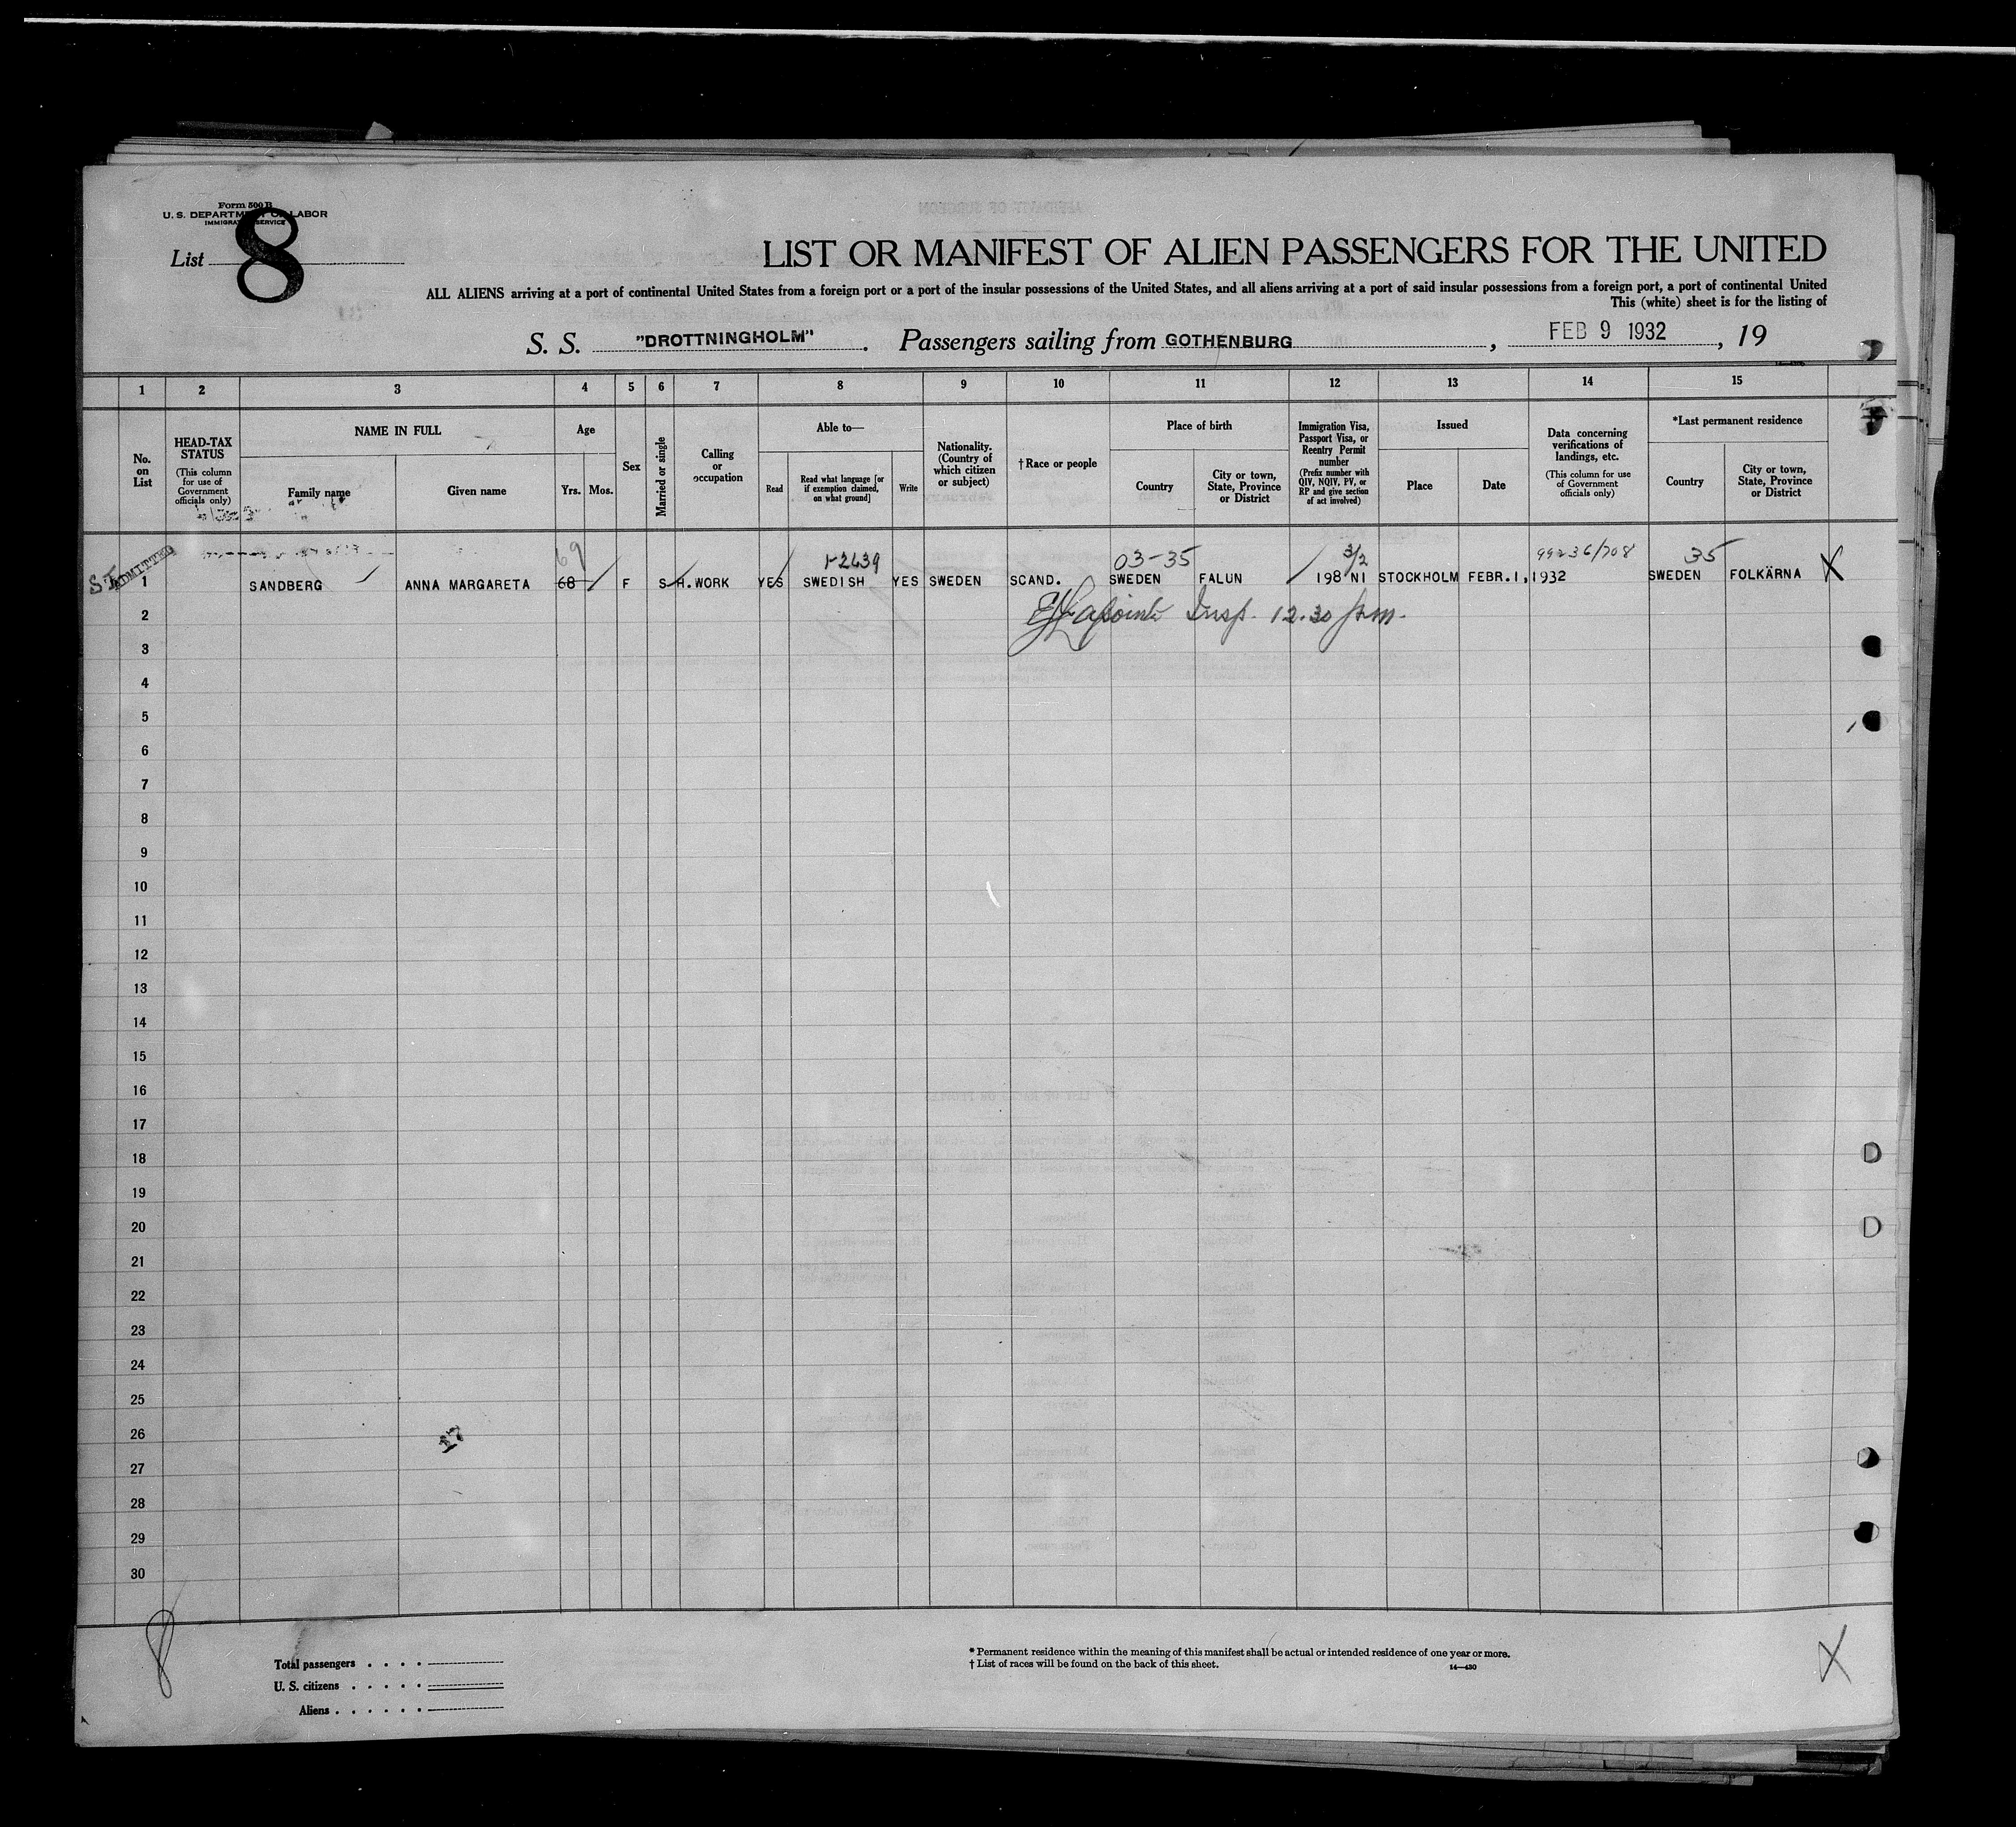 Form 500 B
U. S. DEPARTMENT OF LABOR
IMMIGRATION SERVICE
List 8
LIST OR MANIFEST OF ALIEN PASSENGERS FOR THE UNITED
ALL ALIENS arriving at a port of continental United States from a foreign port or a port of the insular possessions of the United States, and all aliens arriving at a port of said insular possessions from a foreign port, a port of continental United
This (white) sheet is for the listing of
S. S. "DROTTNINGHOLM". Passengers sailing from GOTHENBURG, FEB 9 1932, 19
1 2 3 4 5 6 7 8 9 10 11 12 13 14 15
No. on List
HEAD-TAX STATUS
(This column for use of Government officials only)
NAME IN FULL
Family name
Given name
Age
Yrs.
Mos.
Sex
Married or single
Calling or occupation
Able to—
Read
Read what language [or if exemption claimed, on what ground]
Write
Nationality. (Country of which citizen or subject)
† Race or people
Place of birth
Country
City or town, State, Province or District
Immigration Visa, Passport Visa, or Reentry Permit number
(Prefix number with QIV, NQIV, PV, or RP and give section of act involved)
Issued
Place
Date
Data concerning verifications of landings, etc.
(This column for use of Government officials only)
*Last permanent residence
Country
City or town, State, Province or District
69 1-2639 03-35 3/2 99236/708 35
ADMITTED 1 SANDBERG ANNA MARGARETA 68 F S H.WORK YES SWEDISH YES SWEDEN SCAND. SWEDEN FALUN 198 NI STOCKHOLM FEBR.1,1932 SWEDEN FOLKÄRNA X
2 Lapointe Insp. 12.30 p.m.
3
4
5
6
7
8
9
10
11
12
13
14
15
16
17
18
19
20
21
22
23
24
25
26
27
28
29
30
8
Total passengers
U. S. citizens
Aliens
* Permanent residence within the meaning of this manifest shall be actual or intended residence of one year or more.
† List of races will be found on the back of this sheet.
14—430
X